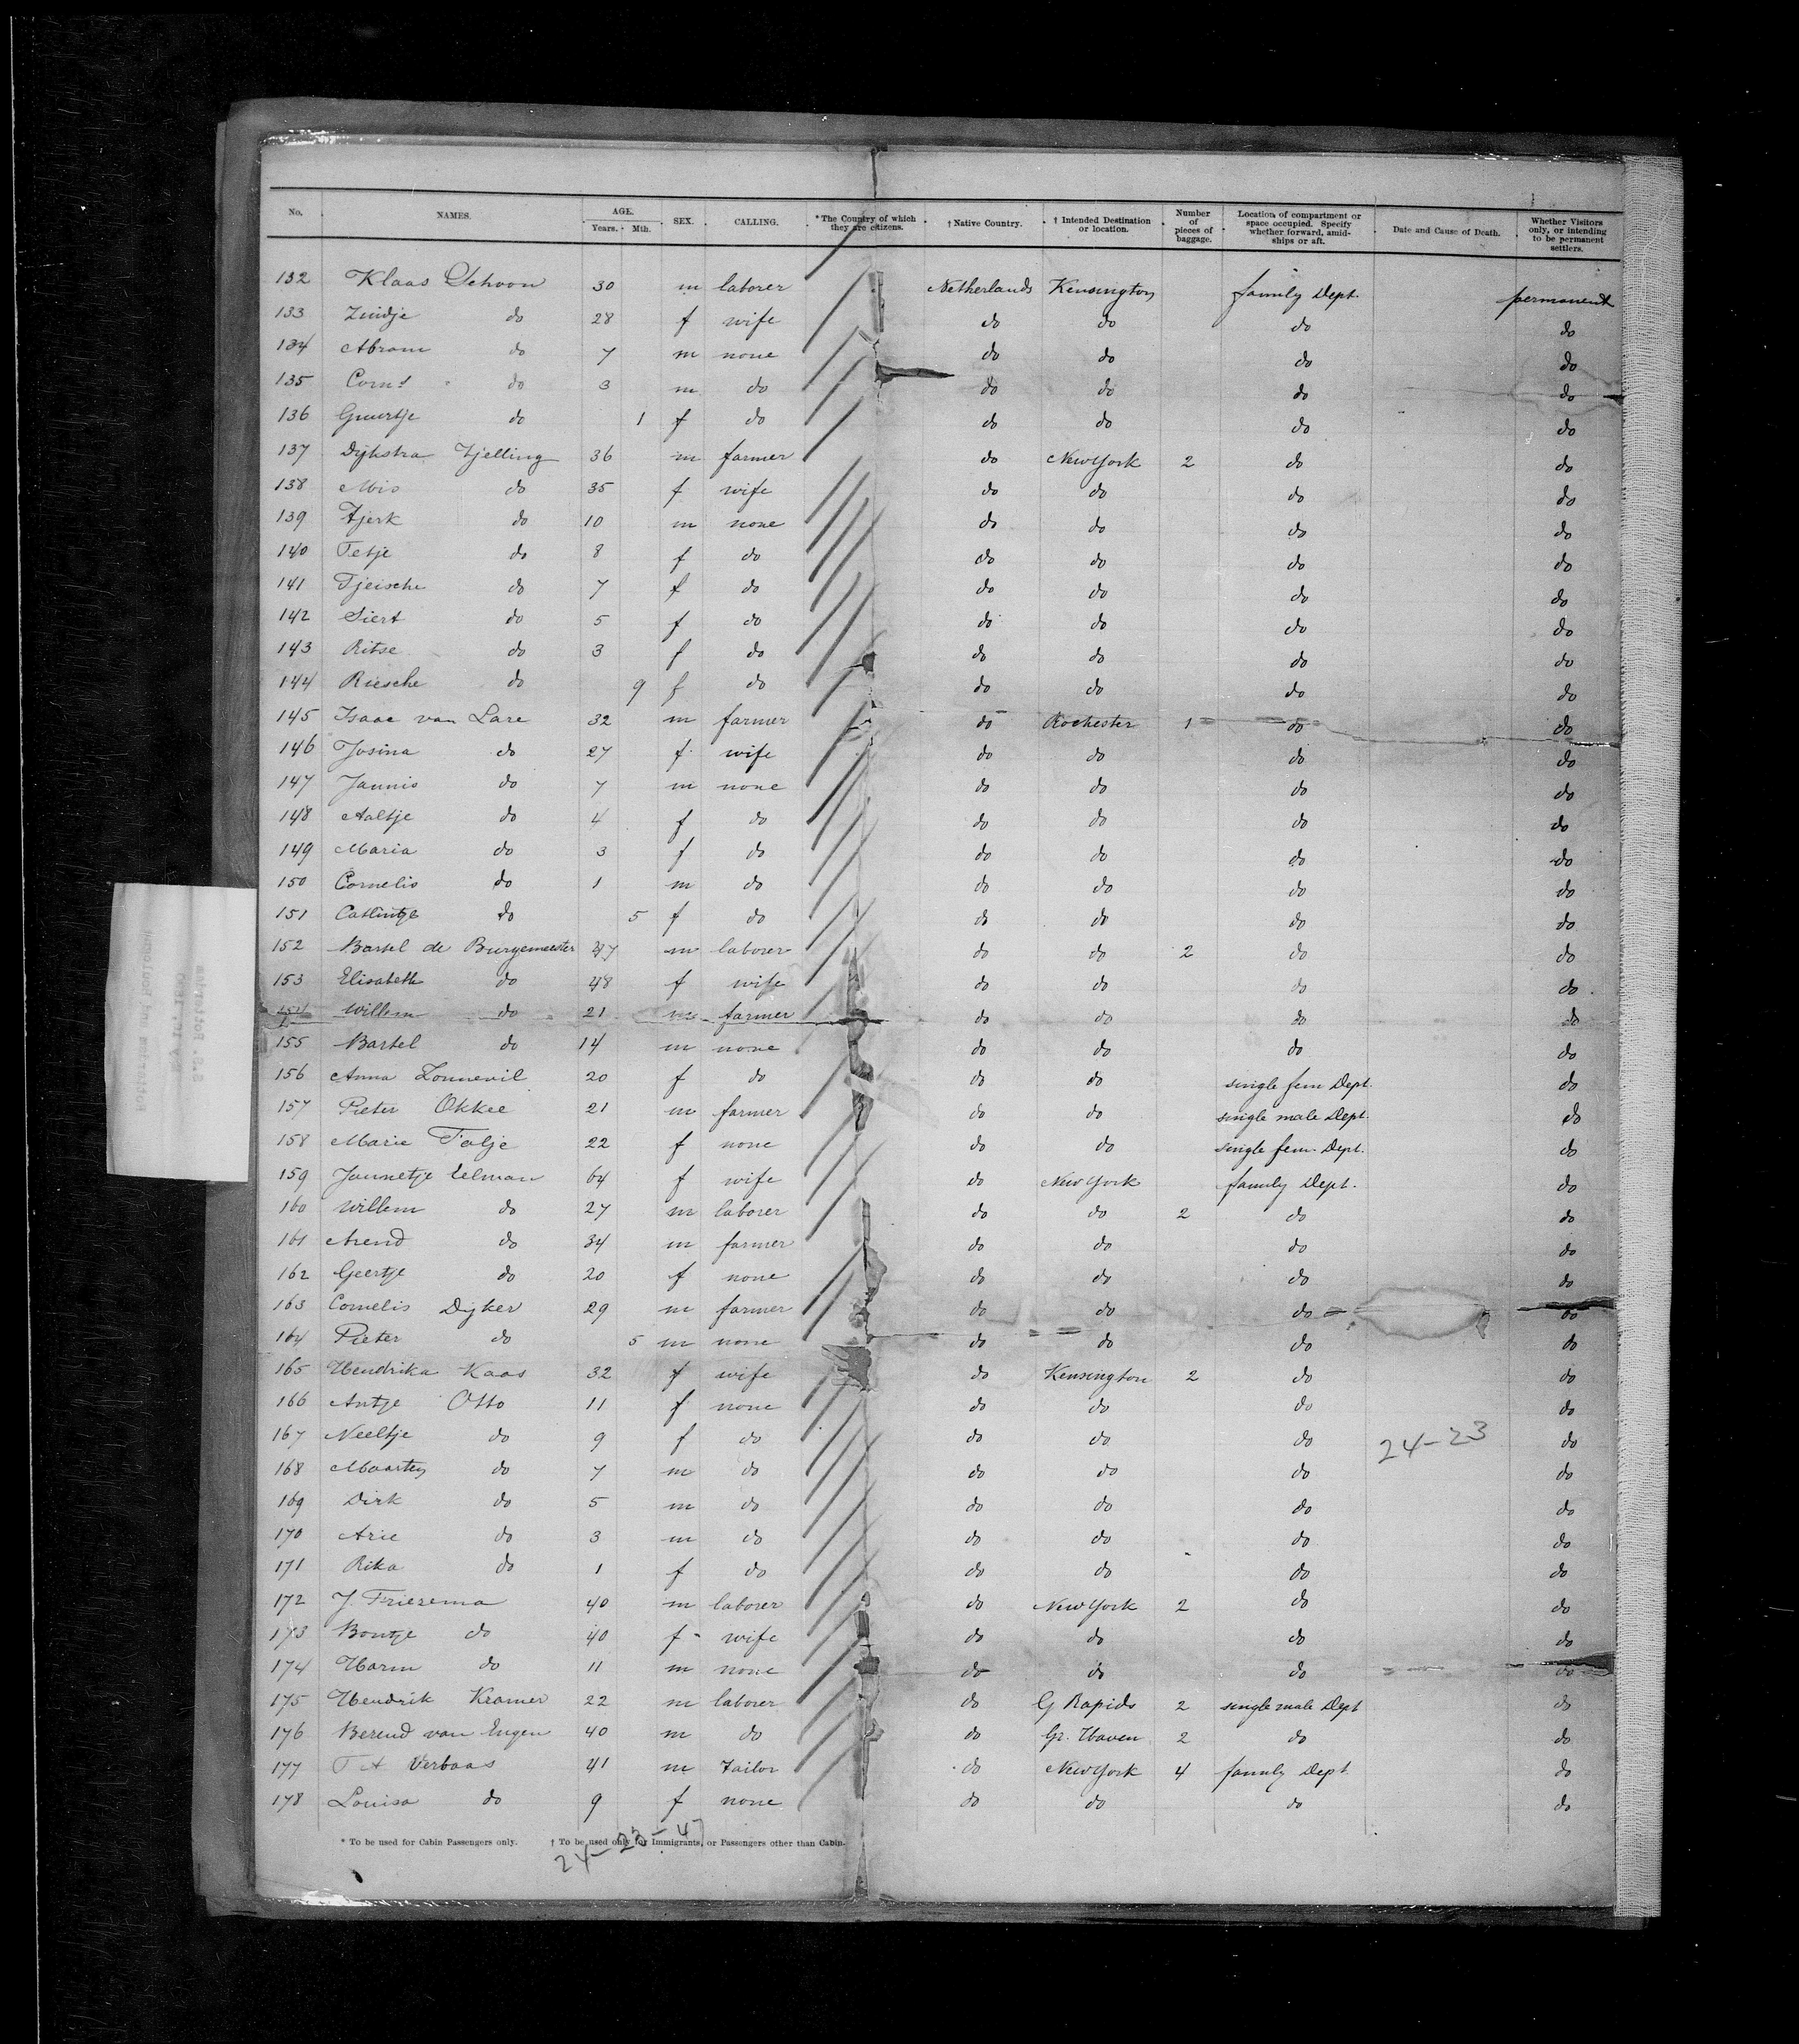 No. NAMES. AGE. Years. Mth. SEX. CALLING. * The Country of which they are citizens. † Native Country. † Intended Destination or location. Number of pieces of baggage. Location of compartment or space occupied. Specify whether forward, amidships or aft. Date and Cause of Death. Whether Visitors only, or intending to be permanent settlers.
132 Klaas Schoon 30 m laborer Netherlands Kensington family Dept. permanent
133 do 28 f wife do do do do
134 Abram do 7 m none do do do do
135 Corns do 3 m do do do do do
136 Guurtje do 1 f do do do do do
137 Dijkstra Tjelling 36 m farmer do New York 2 do do
138 Mis do 35 f wife do do do do
139 Tjerk do 10 m none do do do do
140 Tetje do 8 f do do do do do
141 Tjeische do 7 f do do do do do
142 Siert do 5 f do do do do do
143 Ritse do 3 f do do do do do
144 Riesche do 9 f do do do do do
145 Isaac van Lare 32 m farmer do Rochester 1 do do
146 Josina do 27 f wife do do do do
147 Jannis do 7 m none do do do do
148 Aaltje do 4 f do do do do do
149 Maria do 3 f do do do do do
150 Cornelis do 1 m do do do do do
151 Catlintje do 5 f do do do do do
152 Bartel de Burgemeester m laborer do do 2 do do
153 Elisabeth do 48 f wife do do do do
154 Willem do 21 m farmer do do do do
155 Bartel do 14 m none do do do do
156 Anna Zonnevil 20 f do do do single fem Dept. do
157 Pieter Okkee 21 m farmer do do single male Dept. do
158 Marie Talje 22 f none do do single fem. Dept. do
159 Jannetje Eelman 64 f wife do New York family Dept. do
160 Willem do 27 m laborer do do 2 do do
161 Arend do 34 m farmer do do do do
162 Geertje do 20 f none do do do do
163 Cornelis Dijker 29 m farmer do do do do
164 Pieter do 5 m none do do do do
165 Hendrika Kaas 32 f wife do Kensington 2 do do
166 Antje Otto 11 f none do do do do
167 Neeltje do 9 f do do do do 24-23 do
168 Maarten do 7 m do do do do do
169 Dirk do 5 m do do do do do
170 Arie do 3 m do do do do do
171 Rika do 1 f do do do do do
172 J. Friezema 40 m laborer do New York 2 do do
173 Bontje do 40 f wife do do do do
174 Harm do 11 m none do do do do
175 Hendrik Kramer 22 m laborer do G Rapids 2 single male Dept do
176 Berend van Engen 40 m do do Gr. Haven 2 do do
177 T A Verbaas 41 m Tailor do New York 4 family Dept. do
178 Louisa do 9 f none do do do do
* To be used for Cabin Passengers only. † To be used only for Immigrants, or Passengers other than Cabin.
24-23-47